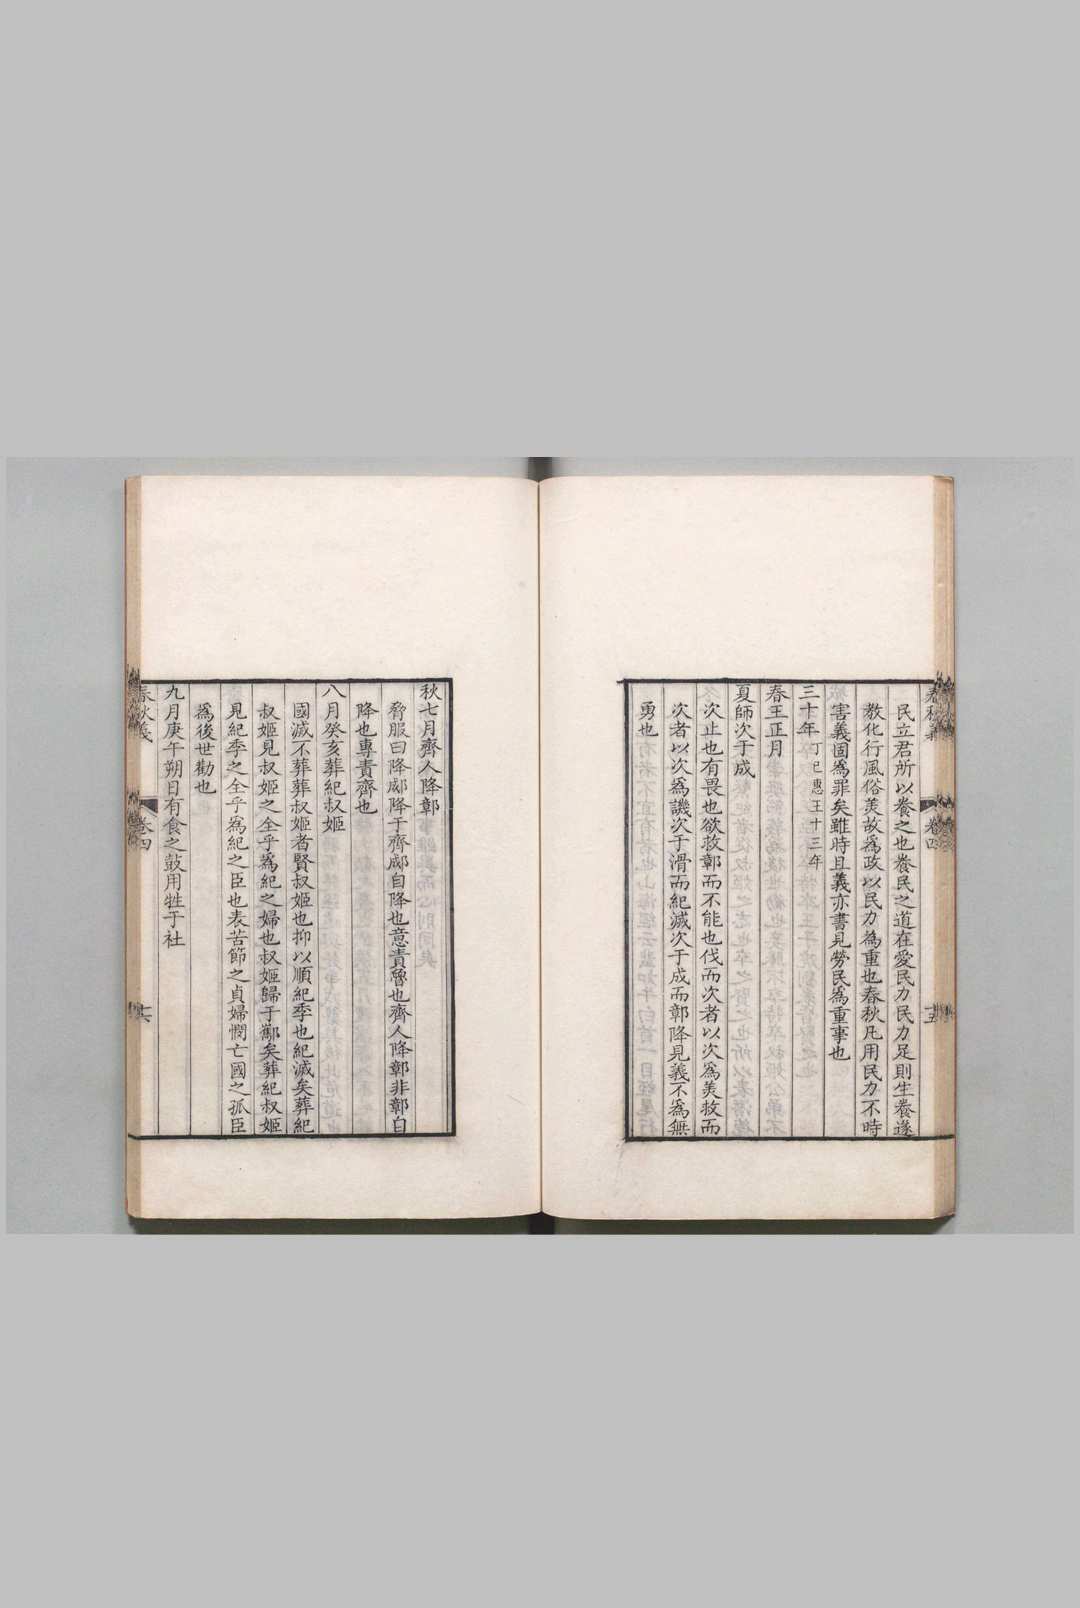 民立君所以養之也養民之道在愛民力民力足則生養遂
教化行風俗美故為政以民力為重也春秋凡用民力不時
害義固為罪矣雖時且義亦書見勞民為重事也
三十年丁巳惠王十三年
春王正月
夏師次于成
次止也有畏也欲救鄣而不能也伐而次者以次為美救而
次者以次為譏次于滑而紀滅次于成而鄣降見義不為無
勇也
春秋義 卷四 十五
秋七月齊人降鄣
脅服曰降郕降于齊郕自降也意責魯也齊人降鄣非鄣自
降也專責齊也
八月癸亥葬紀叔姬
國滅不葬葬叔姬者賢叔姬也抑以順紀季也紀滅矣葬紀
叔姬見叔姬之全乎為紀之婦也叔姬歸于酅矣葬紀叔姬
見紀季之全乎為紀之臣也表苦節之貞婦憫亡國之孤臣
為後世勸也
九月庚午朔日有食之鼓用牲于社
春秋義 卷四 十六